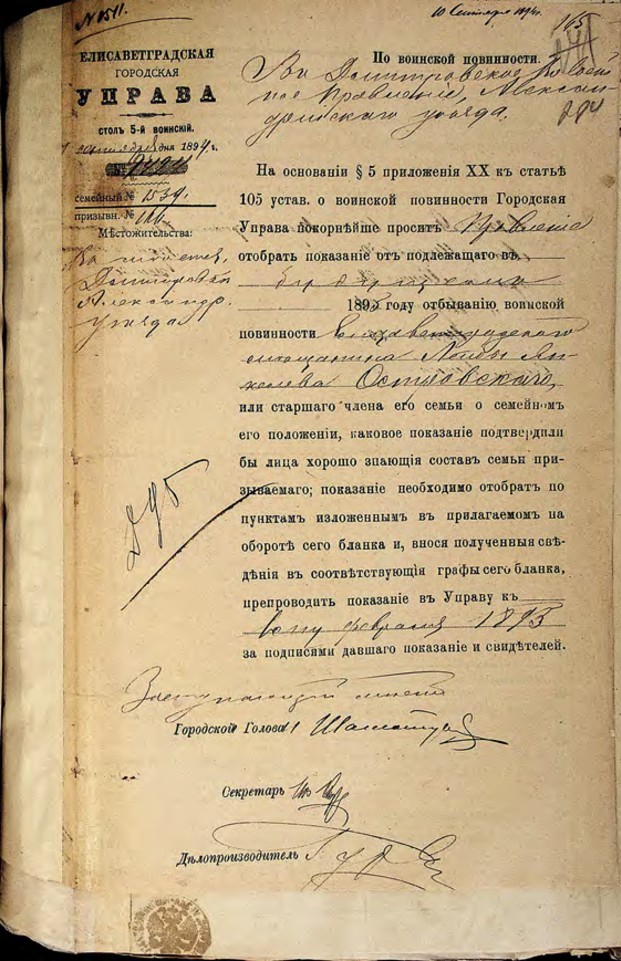 № 1511.
10 Сентября 1894 г.
165
ЕЛИСАВЕТГРАДСКАЯ
ГОРОДСКАЯ
УПРАВА
столъ 5-й воинскій.
сентября дня 1894 г.
семейный № 1539.
призывн. №
Мѣстожительства:
Димитровка
Александр.
уѣзда
284
По воинской повинности.
Въ Дмитровское
ное Правленіе, Алексан-
дрійскаго уѣзда.
На основаніи § 5 приложенія XX къ статьѣ
105 устав. о воинской повинности Городская
Управа покорнѣйше проситъ Правленіе
отобрать показаніе отъ подлежащаго въ
будущемъ
189 году отбыванію воинской
повинности Елисаветградскаго
мѣщанина Ян-
келева Островскаго,
или старшаго члена его семьи о семейномъ
его положеніи, каковое показаніе подтвердили
бы лица хорошо знающія составъ семьи при-
зываемаго; показаніе необходимо отобрать по
пунктамъ изложеннымъ въ прилагаемомъ на
оборотѣ сего бланка и, внося полученныя свѣ-
дѣнія въ соотвѣтствующія графы сего бланка,
препроводить показаніе въ Управу къ
февраля 1895
за подписями давшаго показаніе и свидѣтелей.
Заступающій мѣсто
Городской Голова
Секретарь
Дѣлопроизводитель